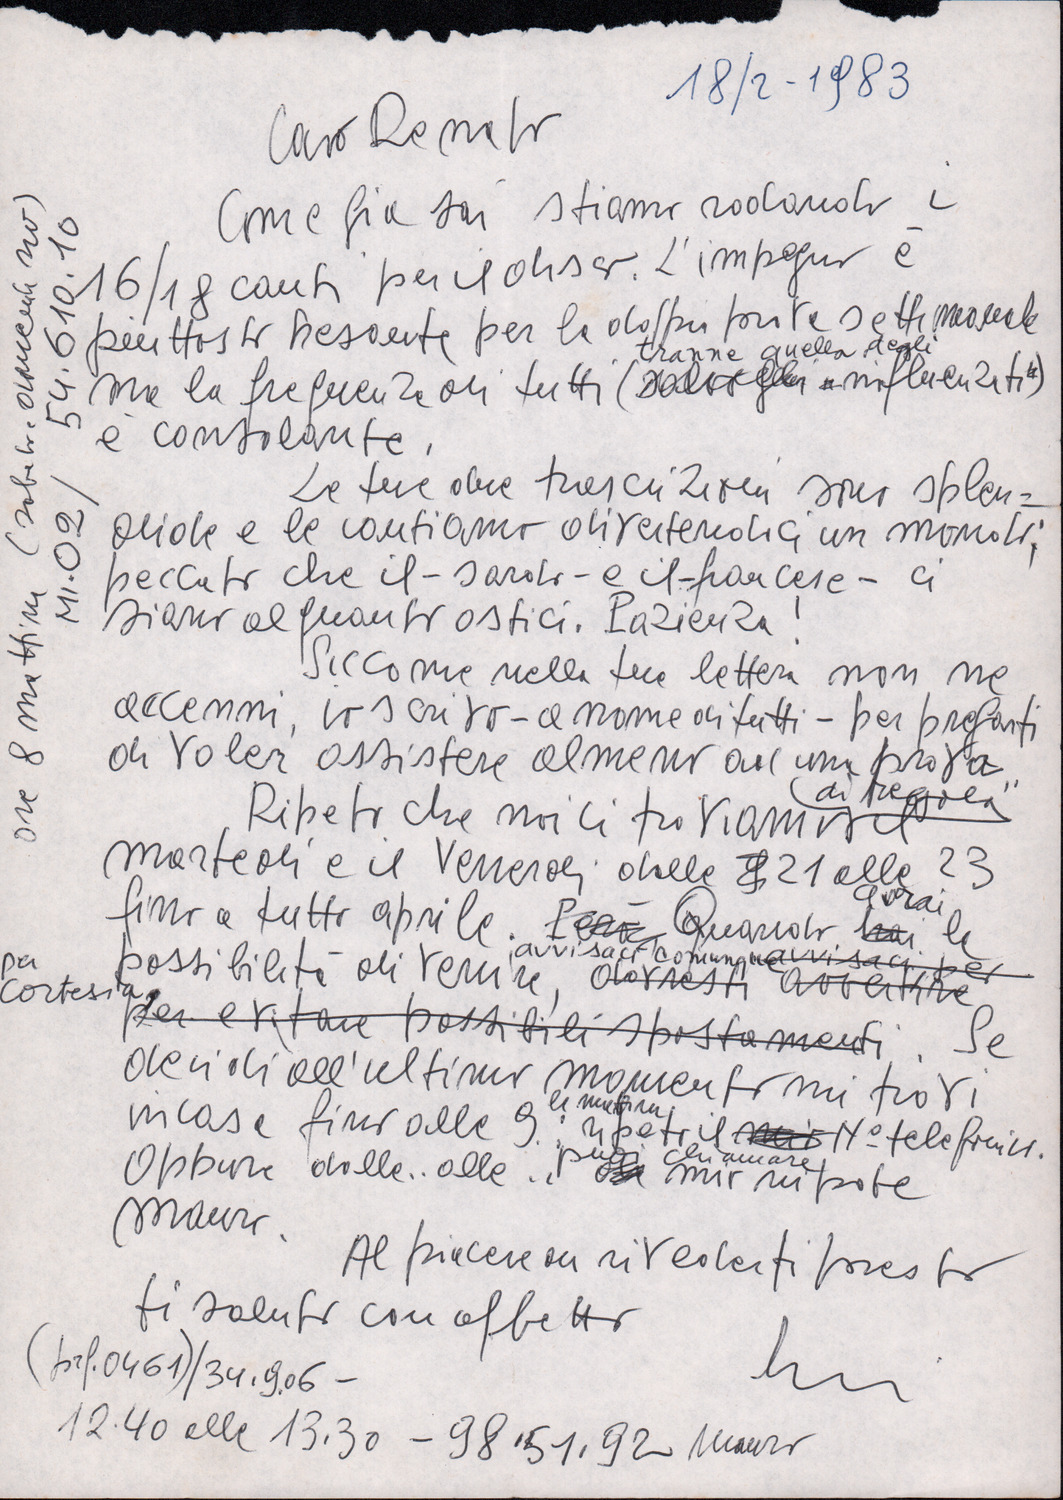 18/2-1983
Caro Renato
Come già sai stiamo rodando i
16/18 canti per il disco. L'impegno è
piuttosto pesante per la doppia prova settimanale
tranne quella degli
ma la frequenza di tutti (salvo gli "influenzati")
è consolante.
Le tue due trascrizioni sono splen=
dide e le cantiamo divertendoci un mondo;
peccato che il - sardo - e il - francese - ci
siano alquanto ostici. Pazienza!
Siccome nella tua lettera non ne
accenni, io scrivo - a nome di tutti - per pregarti
di voler assistere almeno ad una prova
(di regola)
Ripeto che noi ci troviamo il
martedì e il Venerdì dalle 21 alle 23
avrai
fino a tutto aprile. Però Quando hai la
avvisaci comunque avvisaci per
possibilità di venire, dovresti avvertire
per cortesia,
per evitare possibili spostamenti. Se
decidi all'ultimo momento mi trovi
la mattina
in casa fino alle 9: ripeto il mio N° telefonico.
puoi chiamare
Oppure dalle.. alle .. mio nipote
Mauro.
Al piacere di rivederti presto
ti saluto con affetto
(prf.0461)/34.9.06 -
12.40 alle 13.30 - 98.51.92 Mauro
ore 8 mattina (sabato e domenica no)
MI.02/ 54.610.10